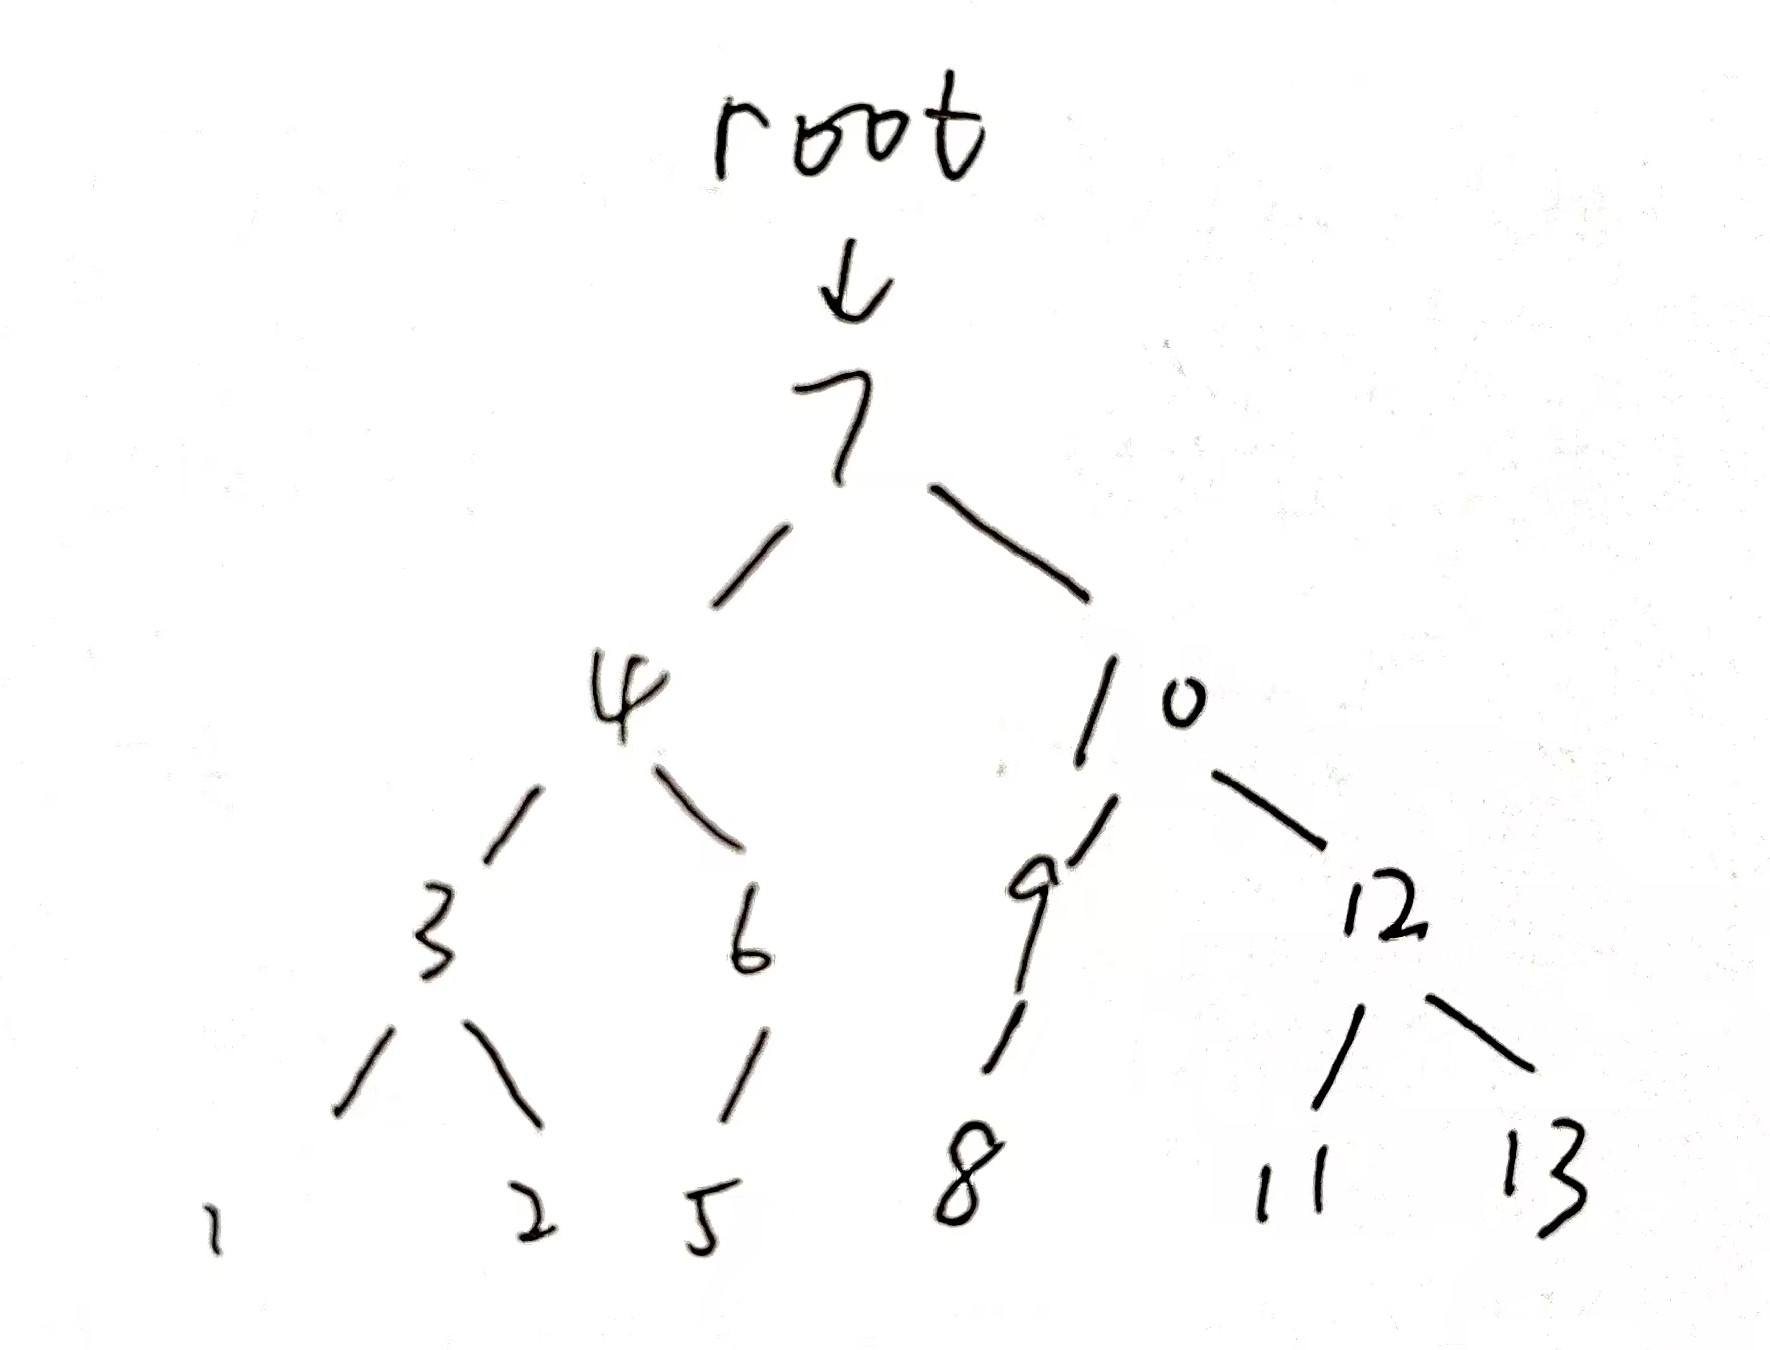 root
7
4 10
3 6 9 12
1 2 5 8 11 13